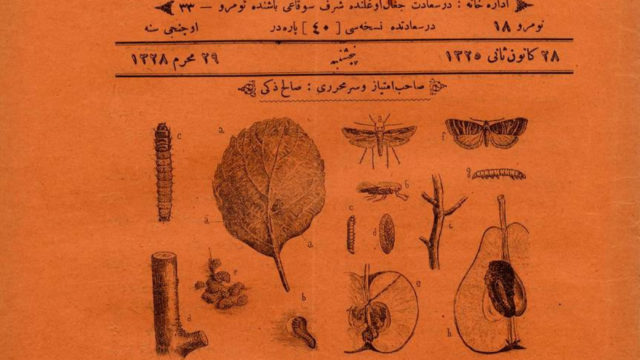 اداره خانه : درسعادت جغال اوغلنده شرف سوقاغی باشنده نومرو — ٣٣
نومرو ١٨
درسعادتده نسخه‌سی [ ٤٠ ] پاره‌در
اوچنجی سنه
٢٨ كانون ثانی ١٣٢٥
پنجشنبه
٢٩ محرم ١٣٢٨
صاحب امتیاز و سرمحرری : صالح ذكی
c
a
a
f
g
b
c
d
a
a
e
d
b
g
h